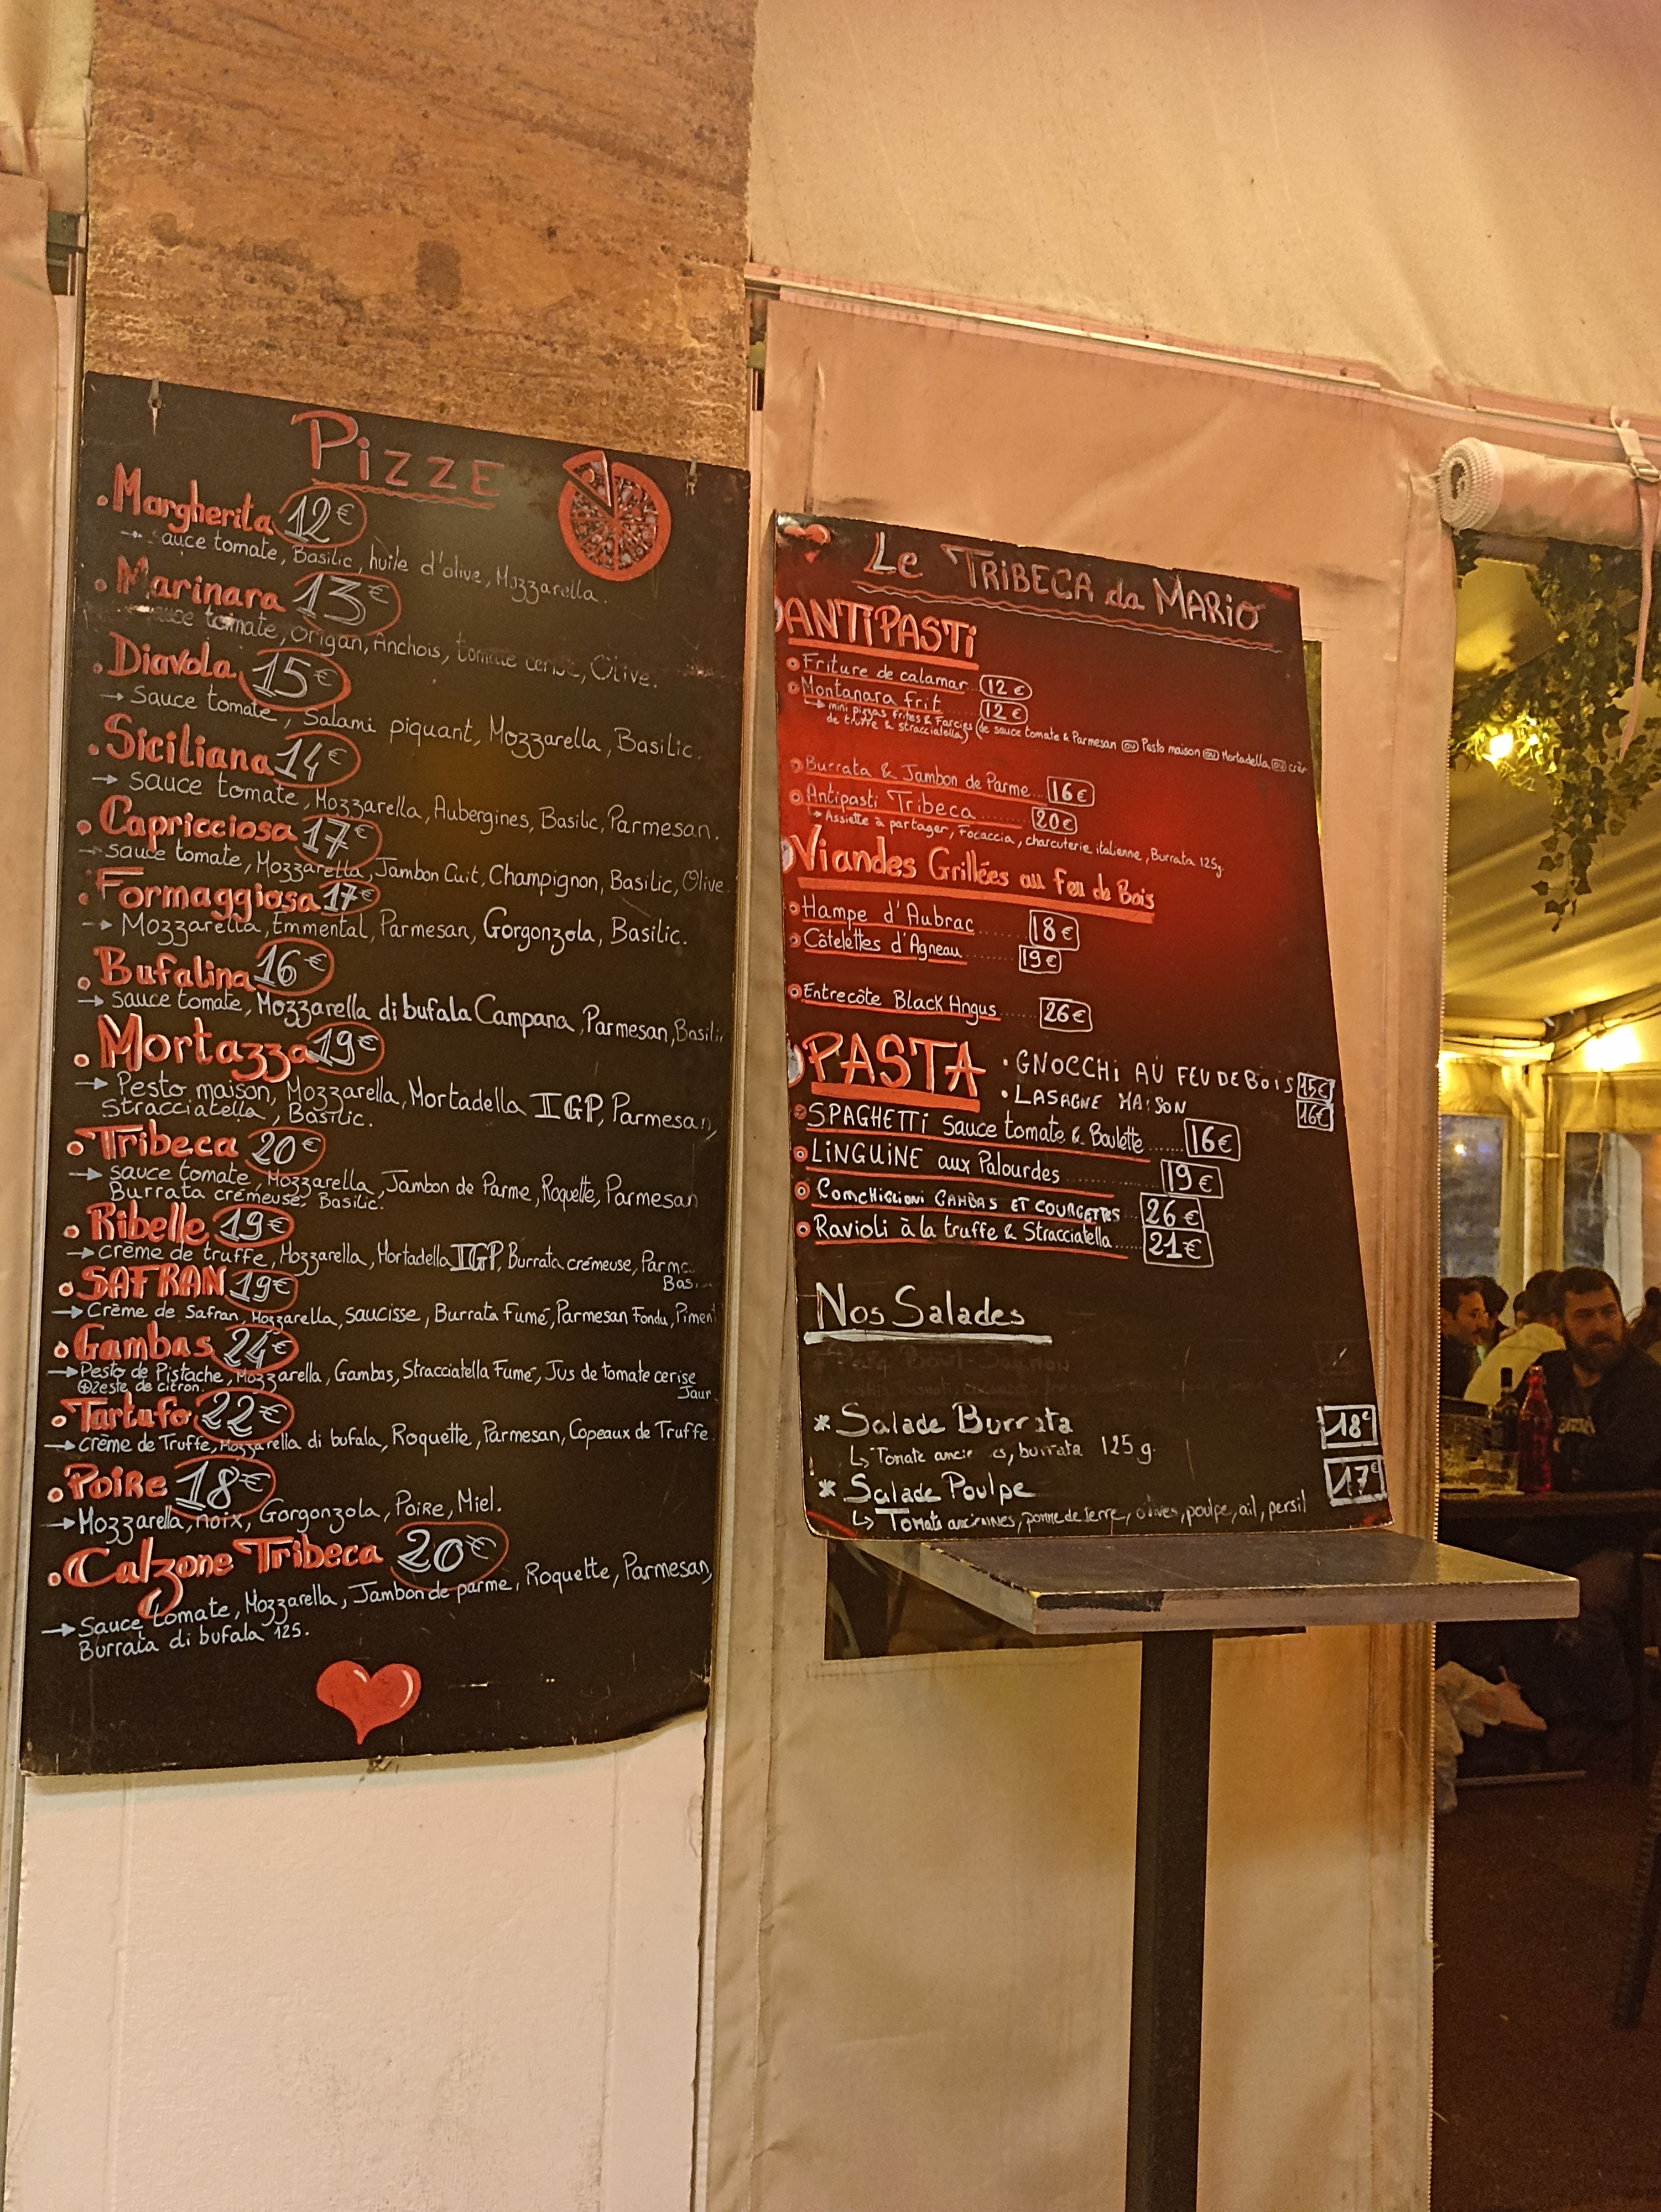 Pizze
• Margherita 12€
→ sauce tomate, Basilic, huile d'olive, Mozzarella.
• Marinara 13€
sauce tomate, origan, Anchois, tomate cerise, Olive.
• Diavola 15€
→ Sauce tomate, Salami piquant, Mozzarella, Basilic.
• Siciliana 14€
→ sauce tomate, Mozzarella, Aubergines, Basilic, Parmesan.
• Capricciosa 17€
→ sauce tomate, Mozzarella, Jambon Cuit, Champignon, Basilic, Olive
• Formaggiosa 17€
→ Mozzarella, Emmental, Parmesan, Gorgonzola, Basilic.
• Bufalina 16€
→ sauce tomate, Mozzarella di bufala Campana, Parmesan, Basilic
• Mortazza 19€
→ Pesto maison, Mozzarella, Mortadella IGP, Parmesan,
Stracciatella, Basilic.
• Tribeca 20€
→ sauce tomate, Mozzarella, Jambon de Parme, Roquette, Parmesan
Burrata crémeuse, Basilic.
• Ribelle 19€
→ crème de truffe, Mozzarella, Mortadella IGP, Burrata crémeuse, Parme
Bas
• SAFRAN 19€
→ Crème de Safran, Mozzarella, saucisse, Burrata Fumé, Parmesan Fondu, Piment
• Gambas 24€
→ Pesto de Pistache, Mozzarella, Gambas, Stracciatella Fumé, Jus de tomate cerise
⊕ Zeste de citron. Jaun
• Tartufo 22€
→ crème de Truffe, Mozzarella di bufala, Roquette, Parmesan, Copeaux de Truffe
• Poire 18€
→ Mozzarella, noix, Gorgonzola, Poire, Miel.
• Calzone Tribeca 20€
→ Sauce tomate, Mozzarella, Jambon de parme, Roquette, Parmesan,
Burrata di bufala 125.
Le TRIBECA da MARIO
ANTIPASTI
Friture de calamar 12€
Montanara frit 12€
→ mini pizzas frites & Farcies (de sauce tomate & Parmesan ou Pesto maison ou Mortadella ou crèm
de truffe & stracciatella)
Burrata & Jambon de Parme... 16€
Antipasti Tribeca ........ 20€
→ Assiette à partager, Focaccia, charcuterie italienne, Burrata 125g
Viandes Grillées au feu de Bois
Hampe d'Aubrac ....... 18€
Côtelettes d'Agneau ........ 19€
Entrecôte Black Angus ...... 26€
PASTA
• GNOCCHI AU FEU DE BOIS 15€
• LASAGNE MAISON 16€
SPAGHETTI Sauce tomate & Boulette ...... 16€
LINGUINE aux Palourdes ............ 19€
COMCHIGLIONI GAMBAS ET COURGETTES ... 26€
Ravioli à la truffe & Stracciatella ..... 21€
Nos Salades
* Salade Burrata 18€
↳ Tomate burrata 125 g.
* Salade Poulpe 17€
↳ Tomate anciennes, pomme de terre, olives, poulpe, ail, persil